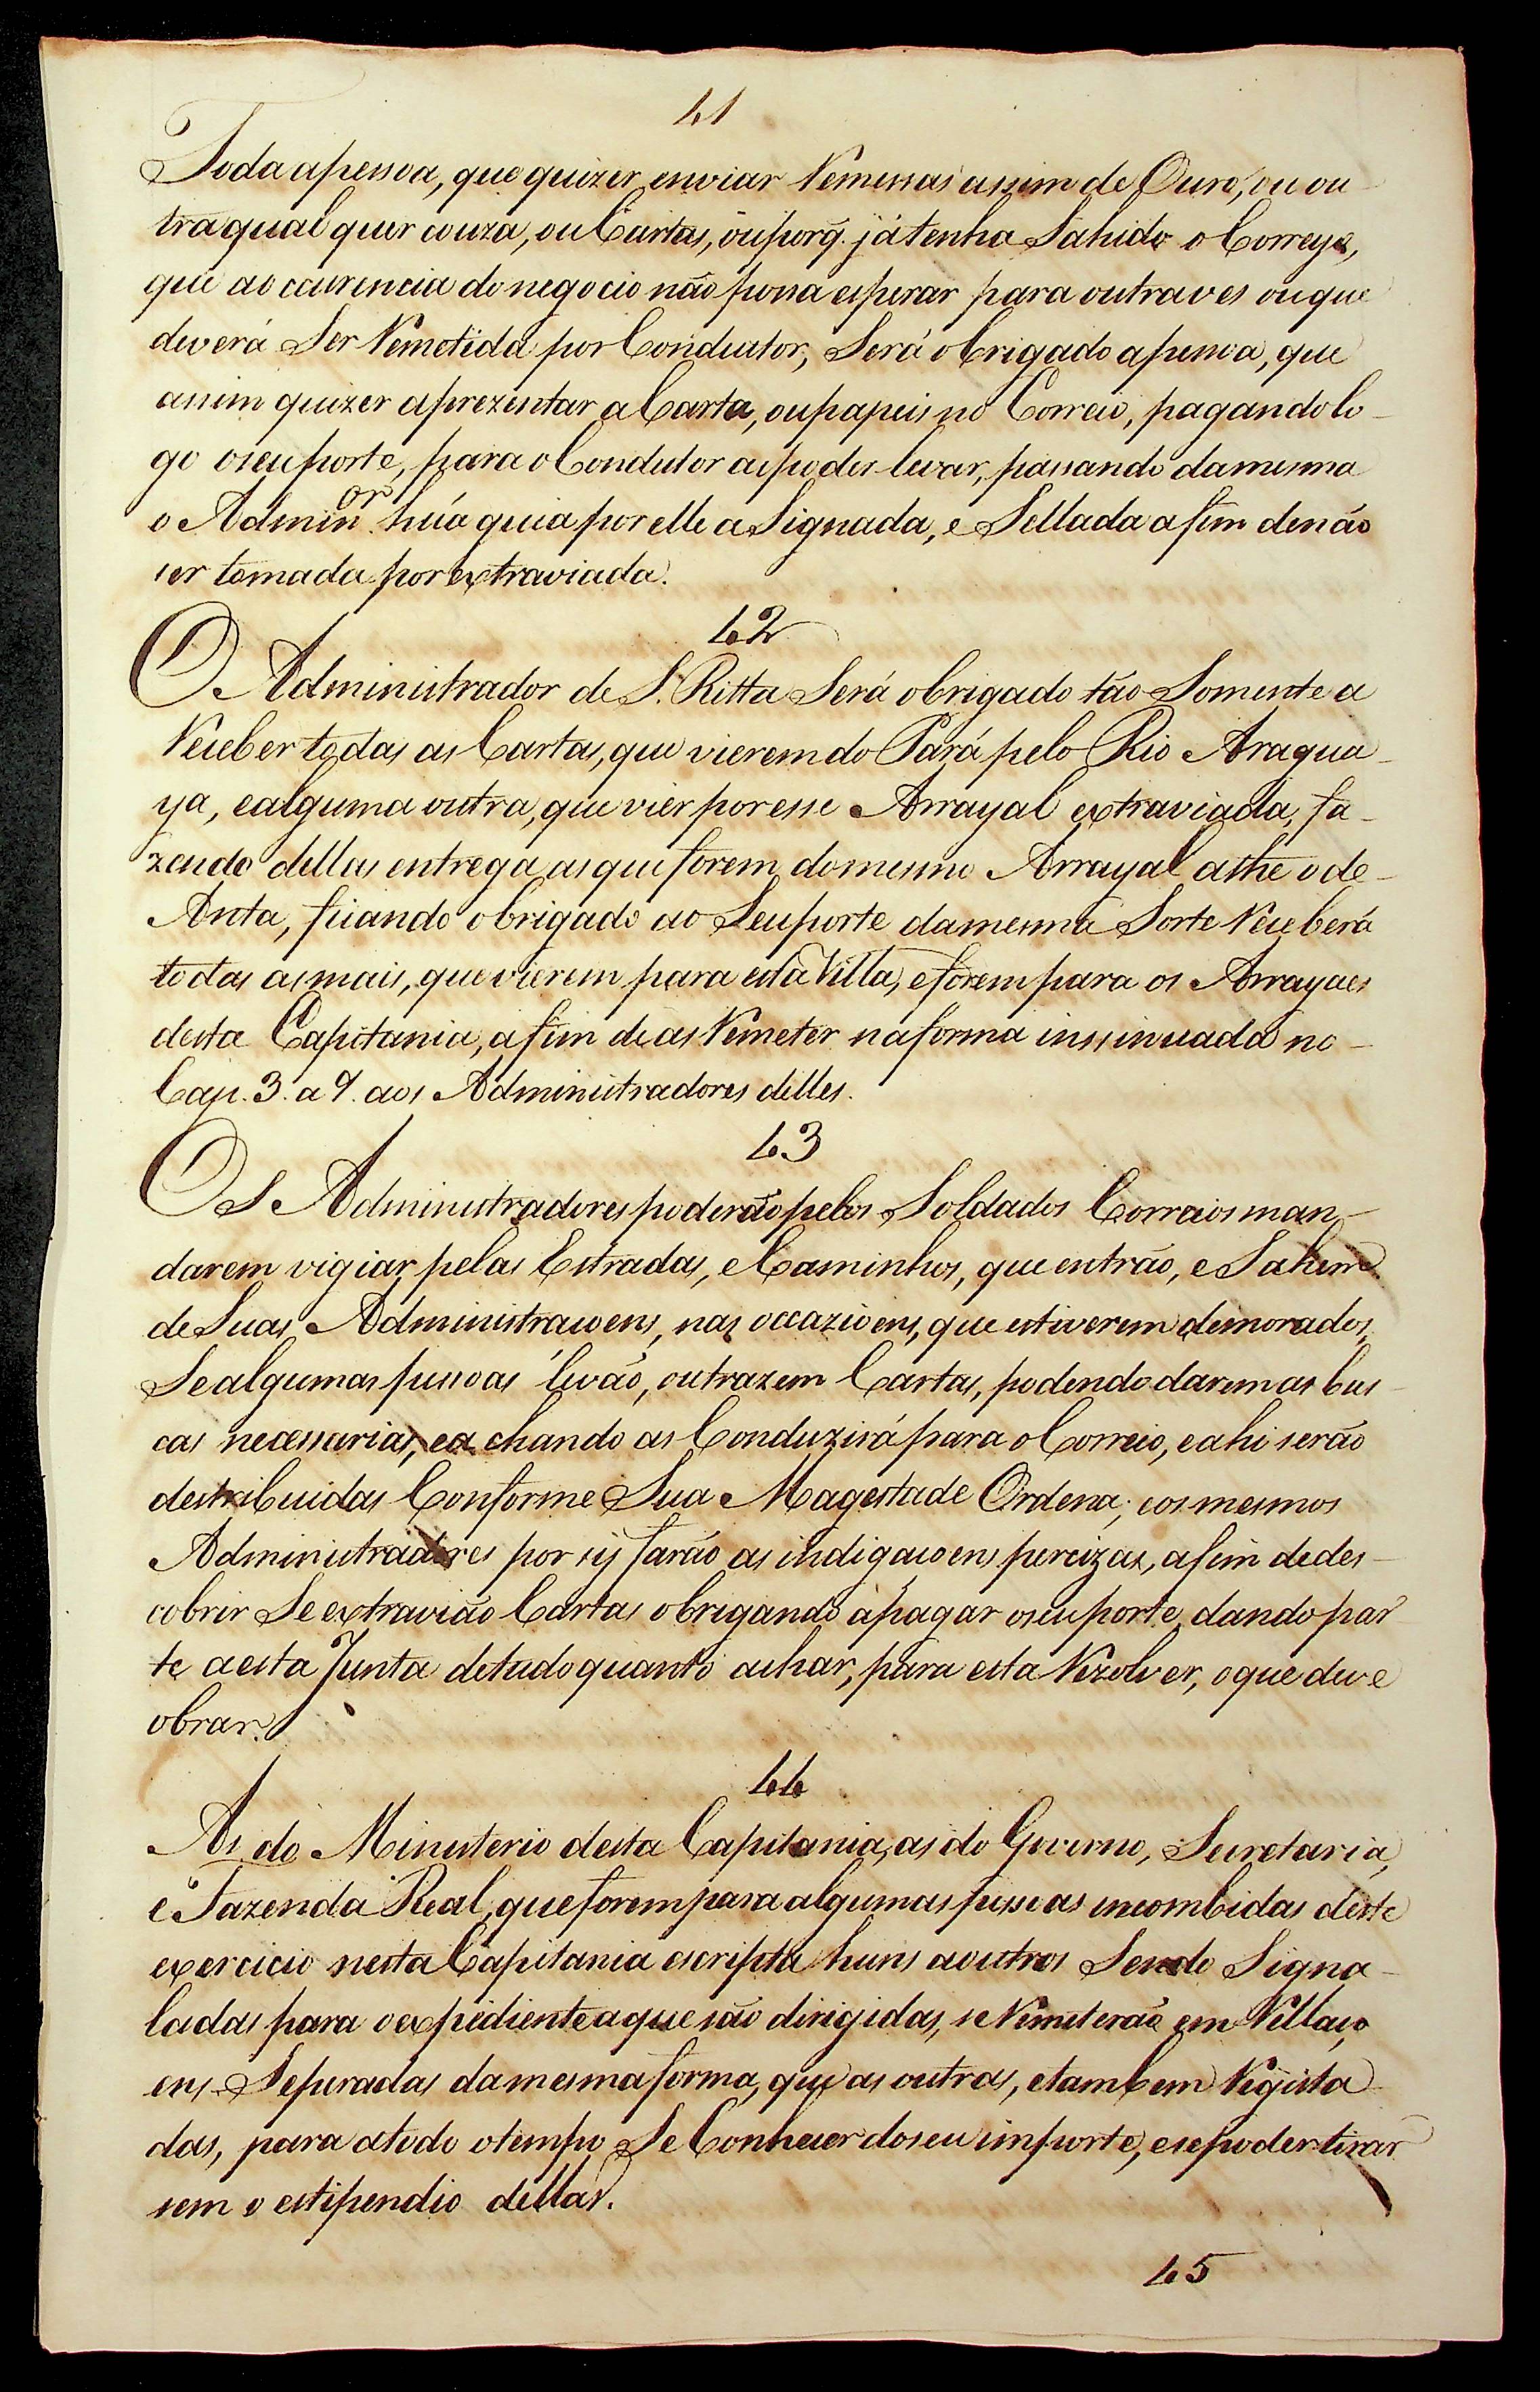 41
Toda a pessoa, que quizer enviar Remessas assim de Ouro, ou ou-
tra qual quer couza, ou Cartas, ou porq. já tenha Sahido o Correyo,
que ao ccurencia do negocio não possa esperar para outra ves ou que
deverá Ser Remetida por Conductor, Será obrigado a pessoa, que
assim quizer aprezentar a Carta, ou papeis no Correio, pagando lo-
go o seu porte, para o Condutor as poder levar, passando da mesma
o Adminor húa guia por elle aSignada, e Sellada afim de não
ser tomada por extraviada.
42
O Administrador de S. Ritta Será obrigado tão Somente a
Receber todas as Cartas, que vierem do Pará pelo Rio Aragua-
ya, e alguma outra, que vier por esse Arrayal extraviada, fa-
zendo dellas entrega as que forem do mesmo Arrayal athe o de-
Anta, ficando obrigado ao Seu porte da mesma Sorte Receberá
todas as mais, que vierem para esta Villa, e forem para os Arrayaes
desta Capitania, afim de as Remeter na forma inssinuada no-
Cap. 3. a 9. aos Administradores delles.
43
OS Administradores poderão pelos Soldados Correios man-
darem vigiar pelas Estradas, e Caminhos, que entrão, e Sahem
de Suas Administracoens, nas occazioens, que estiverem demorados,
Se algumas pessoas levão, ou trazem Cartas, podendo darem as bus-
cas necessarias, e a chando as Conduzirá para o Correio, e ahi serão
destribuidas Conforme Sua Magestade Ordena; e os mesmos
Administradores por sy farão as indigacoens percizas, afim de des-
cobrir Se extravião Cartas obrigando a pagar o seu porte, dando par-
te a esta Junta de tudo quanto achar, para esta Rezolver, o que deve
obrar.
44
As do Ministerio desta Capitania, as do Governo, Secretaria,
e Fazenda Real, que forem para algumas pessoas encombidas deste
exercicio nesta Capitania escripta huns a outros Sendo Signa-
ladas para o expediente a que são dirigidas, se Remeterão em Rellaço
ens Seperadas da mesma forma, que as outras, e tambem Regista-
das, para a todo o tempo Se Conhecer do seu importe, e se poder tirar
sem o estipendio dellas.
45